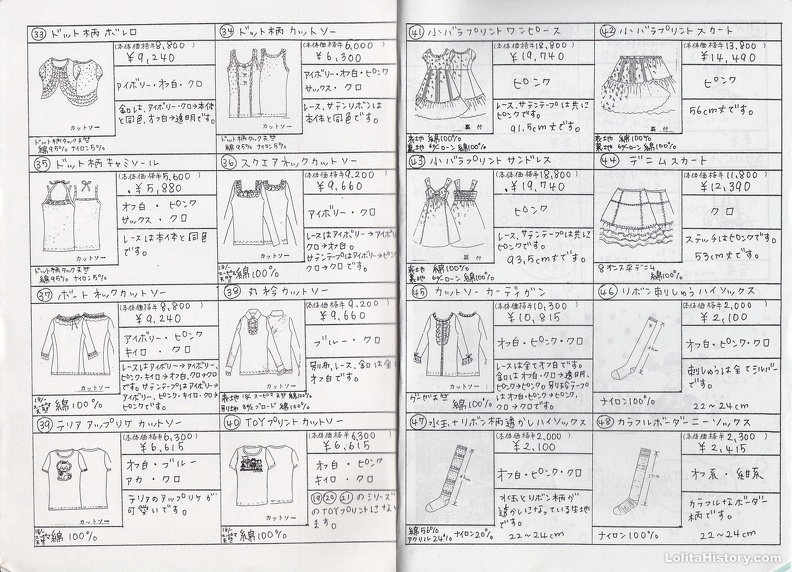 ㉝ ドット柄 ボレロ
(本体価格¥8,800)
¥9,240
アイボリー・オフ白・クロ
釦は、アイボリー・クロ→本体
と同色、オフ白→透明です。
カットソー
綿95% ナイロン5%
㉞ ドット柄 カットソー
(本体価格¥6,000)
¥6,300
アイボリー・オフ白・ピンク
サックス・クロ
レース、サテンリボンは
本体と同色です。
カットソー
綿95% ナイロン5%
㉟ ドット柄 キャミソール
(本体価格¥5,600)
¥5,880
オフ白・ピンク
サックス・クロ
レースは本体と同色
です。
カットソー
綿95% ナイロン5%
㊱ スクエアネックカットソー
(本体価格¥9,200)
¥9,660
アイボリー・クロ
レースはアイボリー→
クロ→オフ白。
サテンテープはアイボリー→ピン
クロ→クロです。
カットソー
綿100%
㊲ ボートネックカットソー
(本体価格¥8,800)
¥9,240
アイボリー・ピンク
キイロ・クロ
レースはアイボリー→アイボリー、
ピンク・キイロ→オフ白、クロ→クロ
です。サテンテープはアイボリー→
アイボリー、ピンク・キイロ・クロ→
ピンクです。
カットソー
綿100%
㊳ 丸衿カットソー
(本体価格¥9,200)
¥9,660
ブルー・クロ
別布、レース、釦は全
オフ白です。
カットソー
綿100%
綿100%
㊴ テリアアップリケカットソー
(本体価格¥6,300)
¥6,615
オフ白・ブルー
アカ・クロ
テリアのアップリケが
可愛いです。
カットソー
綿100%
㊵ TOYプリントカットソー
(本体価格¥6,300)
¥6,615
オフ白・ピンク
キイロ・クロ
⑲⑳㉑のシリーズ
のTOYプリントにな
ます。
カットソー
綿100%
㊶ 小バラプリントワンピース
(本体価格¥18,800)
¥19,740
ピンク
レース、サテンテープは共に
ピンクです。
91.5cm丈です。
裏付
表地 綿100%
㊷ 小バラプリントスカート
(本体価格¥13,800)
¥14,490
ピンク
56cm丈です。
裏付
表地 綿100%
㊸ 小バラプリントサンドレス
(本体価格¥18,800)
¥19,740
ピンク
レース、サテンテープは共に
ピンクです。
93.5cm丈です。
裏付
表地 綿100%
㊹ デニムスカート
(本体価格¥11,800)
¥12,390
クロ
ステッチはピンクです。
53cm丈です。
8オンスデニム
綿100%
㊺ カットソーカーディガン
(本体価格¥10,300)
¥10,815
オフ白・ピンク・クロ
レースは全てオフ白です。
釦はオフ白・クロ→透明、
ピンク→ピンクです。別珍テープ
はオフ白・ピンク→ピンク、
クロ→クロです。
カットソー
綿100%
㊻ リボン刺しゅうハイソックス
(本体価格¥2,000)
¥2,100
オフ白・ピンク・クロ
刺しゅうは全てシルバー
です。
22〜24cm
ナイロン100%
㊼ 水玉+リボン柄透かしハイソックス
(本体価格¥2,000)
¥2,100
オフ白・ピンク・クロ
水玉とリボン柄が
透かしになっている生地
です。
22〜24cm
綿56%
アクリル24% ナイロン20%
㊽ カラフルボーダーニーソックス
(本体価格¥2,300)
¥2,415
オフ系・紺系
カラフルなボーダー
柄です。
22〜24cm
ナイロン100%
LolitaHistory.com